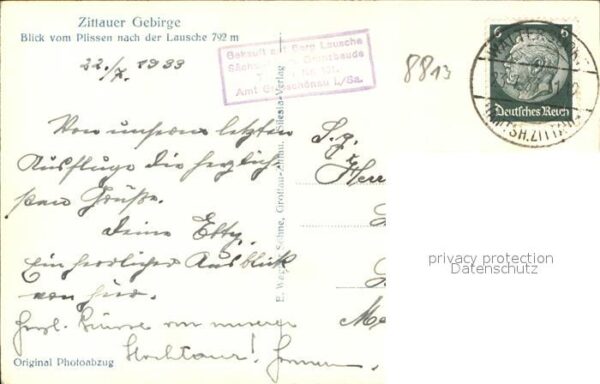 Zittauer Gebirge
Blick vom Plissen nach der Lausche 792 m
22./7. 1933
Gekauft auf Berg Lausche
Amt Großschönau i./Sa.
8813
6 6
Deutsches Reich
Von unserm letzten
Ausfluge die herzlich-
sten Grüße.
Deine Etty.
Ein herrlicher Ausblick
von hier.
Herzl. Grüsse von unserer
Hochtour!
S. g.
Herr
E. Wagner Söhne, Grottau-Zittau, Silesia-Verlag
Original Photoabzug
privacy protection
Datenschutz